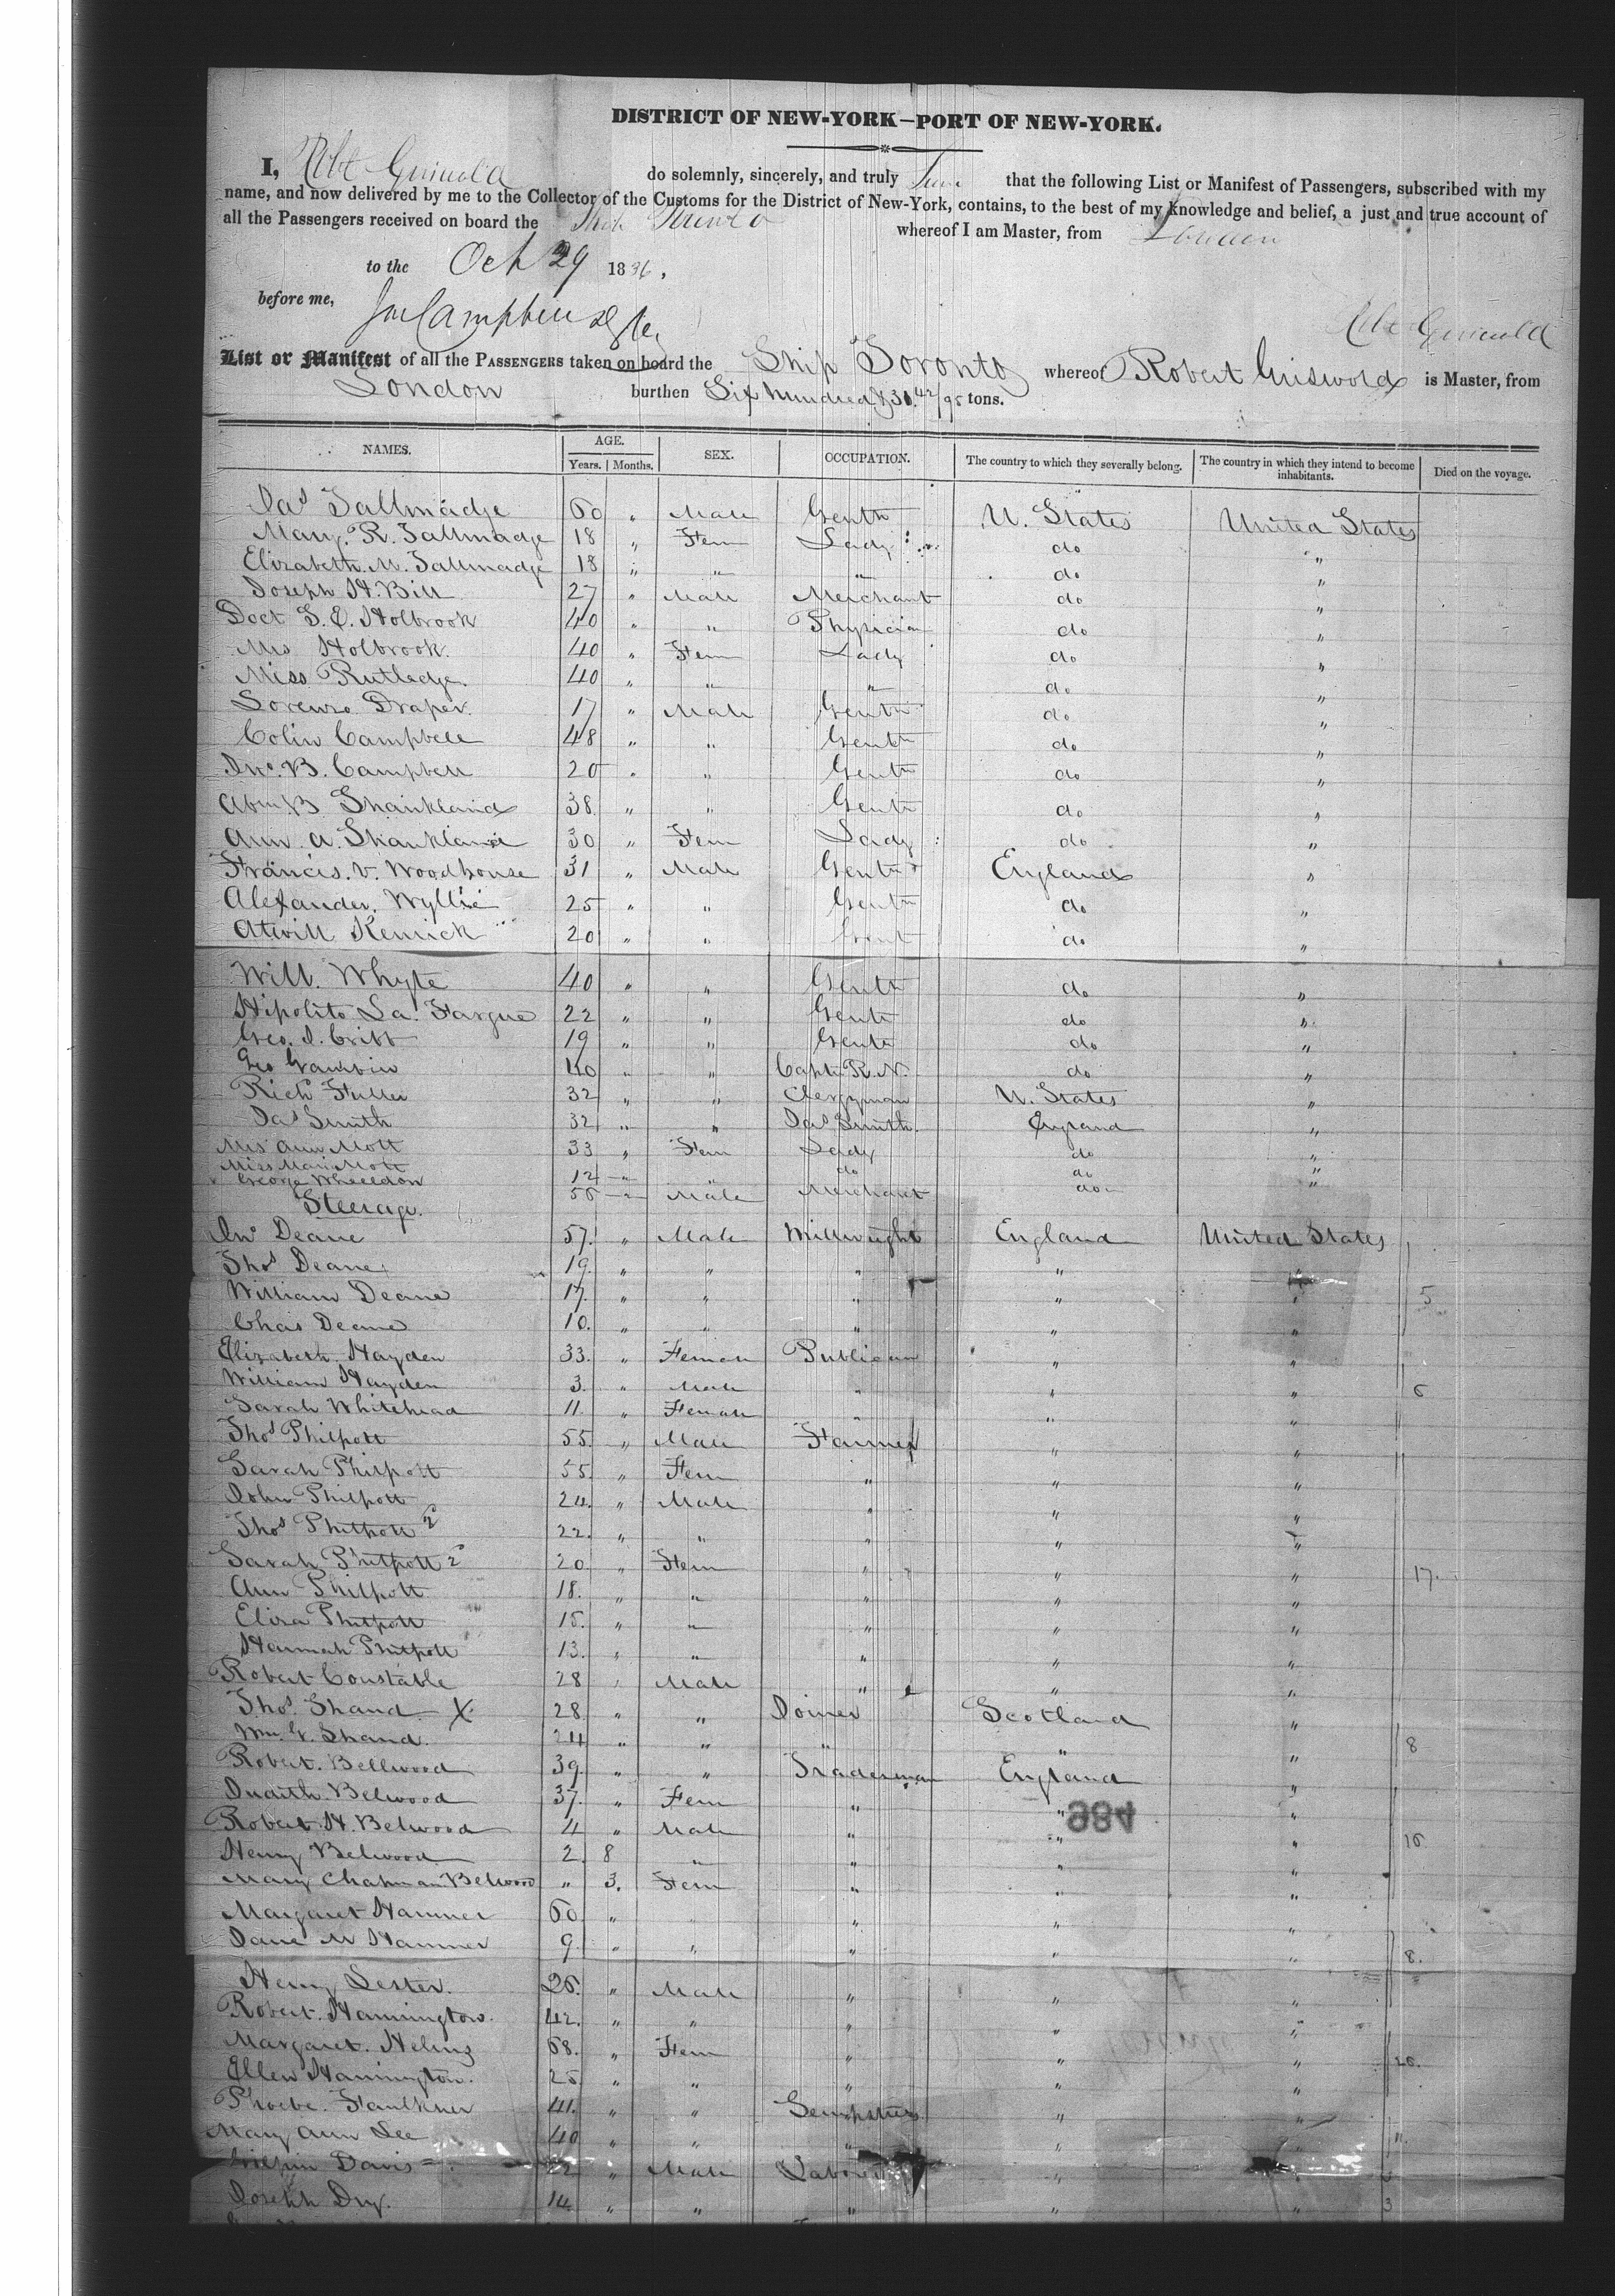 DISTRICT OF NEW-YORK—PORT OF NEW-YORK.
I, Robt Griswold do solemnly, sincerely, and truly that the following List or Manifest of Passengers, subscribed with my
name, and now delivered by me to the Collector of the Customs for the District of New-York, contains, to the best of my knowledge and belief, a just and true account of
all the Passengers received on board the Ship Toronto whereof I am Master, from London
to the Oct 29 1836.
before me,
Robt Griswold
List or Manifest of all the PASSENGERS taken on board the Ship Toronto whereof Robert Griswold is Master, from
London burthen Six hundred & 31 42/95 tons.
NAMES. AGE. SEX. OCCUPATION. The country to which they severally belong. The country in which they intend to become inhabitants. Died on the voyage.
Years. Months.
Jas Tallmadge 60 " Male Gentn U. States United States
Mary. R. Tallmadge 18 " Fem Lady do "
Elizabeth. M. Tallmadge 18 " " " do "
Joseph H. Bill 27 " Male Merchant do "
Doct S. E. Holbrook 40 " " Physician do "
Mrs Holbrook. 40 " Fem Lady do "
Miss Rutledge. 40 " " " do "
Lorenzo Draper. 17 " Male Gentn do "
Colin Campbell 48 " " Gentn do "
Jno. B. Campbell 20 " " Gentn do "
Abm B Shankland 38 " " Gentn do "
Ann. A. Shankland 30 " Fem Lady do "
Francis. V. Woodhouse 31 " Male Gentn England "
Alexander. Wyllie 25 " " Gentn do "
Atwill Kenrick 20 " " Gent do "
Will. Whyte 40 " " Gentn do "
Hipolito La. Fargue 22 " " Gentn do "
Geo. J. 19 " " Gentn do "
Geo Gambier 40 " " Capt. R. N. do "
Richd Fuller 32 " " Clergyman U. States "
Jas Smith 32 " " Jas Smith. England "
Mrs Ann Mott 33 " Fem Lady do "
Miss Maria Mott 12 " " do do "
George Wheeldon 56 " Male Merchant do "
Steerage.
Jno Deane 57. " Male Millwright England United States
Thos Deane 19. " " " " "
William Deane 17. " " " " " 5
Chas Deane 10. " " " " "
Elizabeth Hayden 33. " Female Publican " "
William Hayden 3. " Male " " " 6
Sarah Whitehead 11. " Female " " "
Thos Philpott 55. " Male Farmer " "
Sarah Philpott 55. " Fem " " "
John Philpott 24. " Male " " "
Thos Philpott 2d 22. " " " " "
Sarah Philpott 2d 20. " Fem " " " 17.
Ann Philpott 18. " " " " "
Eliza Philpott 15. " " " " "
Hannah Philpott 13. " " " " "
Robert Constable 28 " Male " " "
Thos. Shand X 28. " " Joiner Scotland "
Wm. G. Shand. 24 " " " " " 8
Robert. Bellwood 39. " " Tradesman England "
Judith Belwood 37. " Fem " " "
Robert. H. Belwood 4 " Male " " " 15
984
Henry Belwood 2. 8 " " " "
Mary Chapman Belwood " 3. Fem " " "
Margaret Hanner 60. " " " " "
Jane M Hanner 9. " " " " " 8.
Henry Lester. 26. " Male " " "
Robert. Hannington. 42. " " " " "
Margaret. 68. " Fem " " "
Ellen Hannington. 25 " " " " "
Phoebe. Faulkner 41. " " Sempstress " "
Mary Ann Lee 40 " " " " " 11.
Davis 22 " Male Labourer " "
Joseph Dry. 14. " " " " " 3